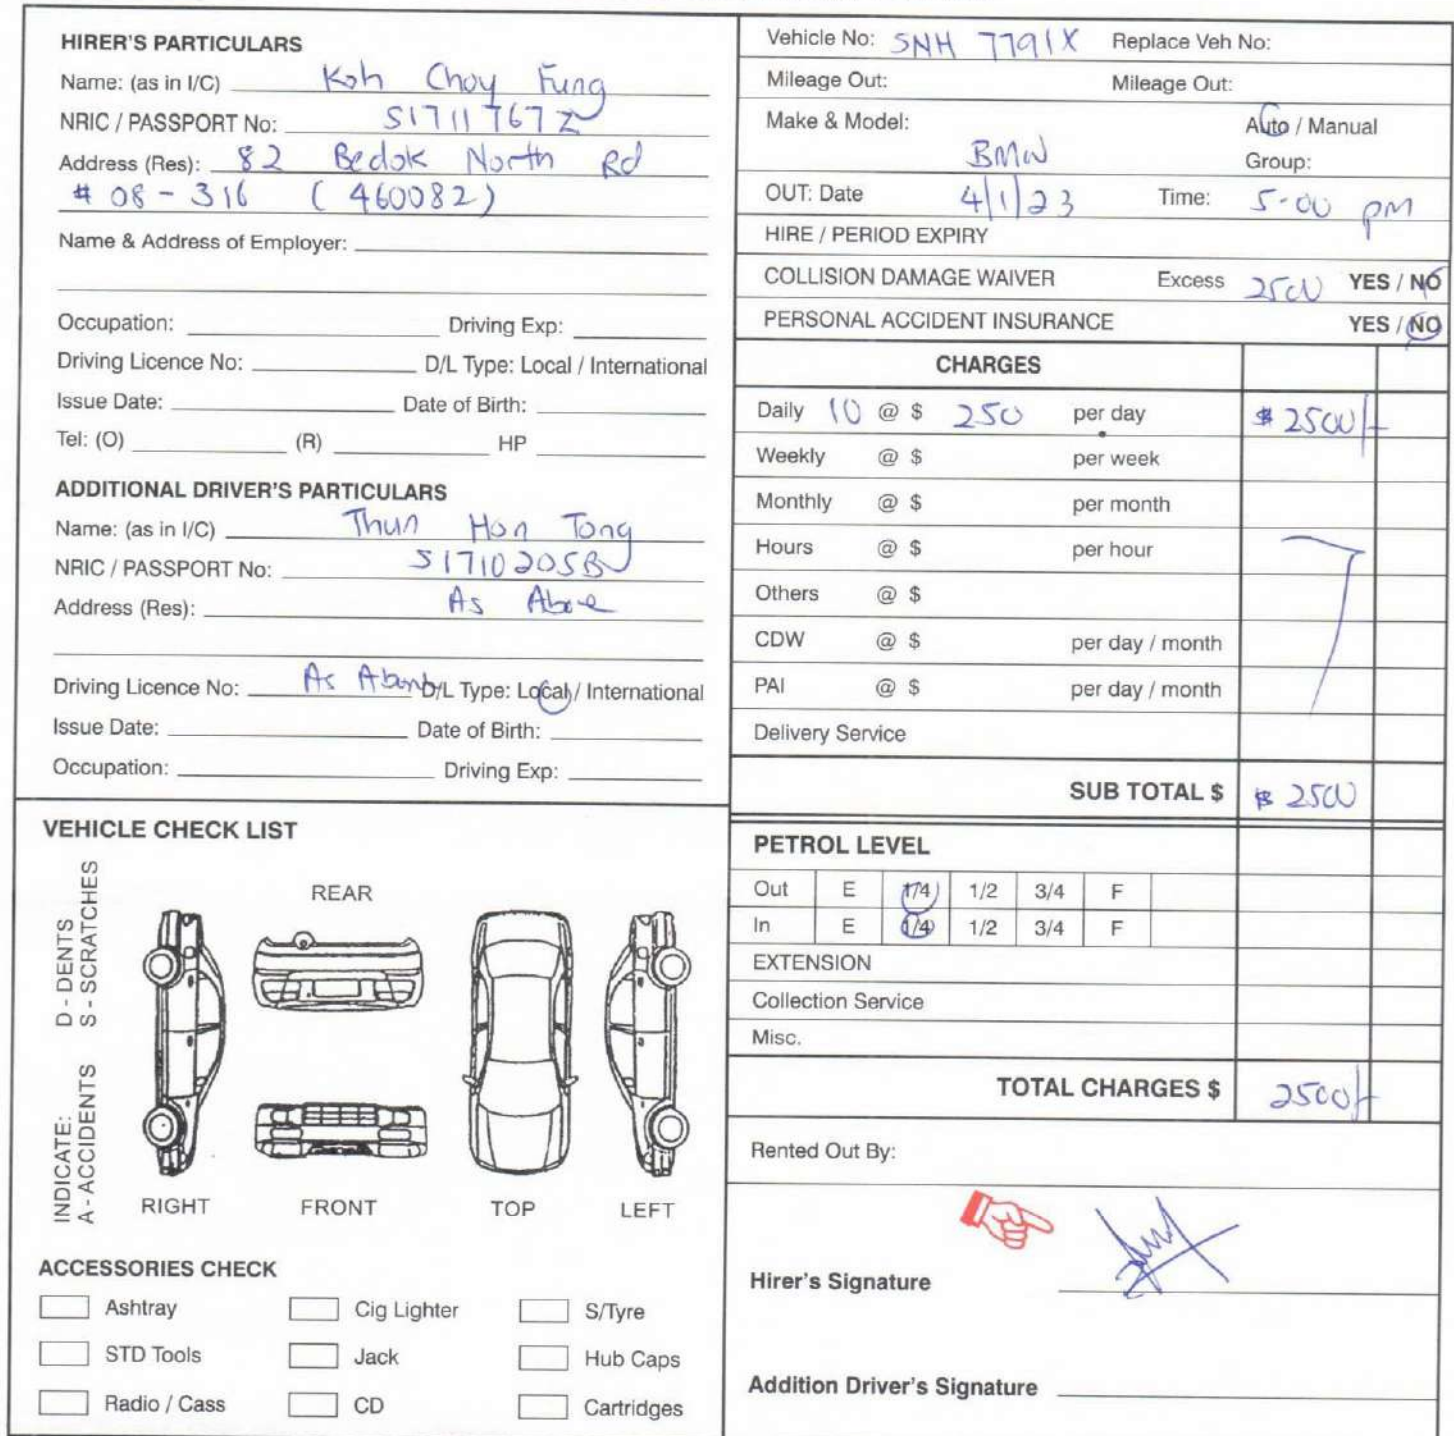 HIRER'S PARTICULARS
Name: (as in I/C) Koh Choy Fung
NRIC / PASSPORT No: S1711767Z
Address (Res): 82 Bedok North Rd
# 08 - 316 (460082)
Name & Address of Employer:
Occupation: Driving Exp:
Driving Licence No: D/L Type: Local / International
Issue Date: Date of Birth:
Tel: (O) (R) HP
ADDITIONAL DRIVER'S PARTICULARS
Name: (as in I/C) Thun Hon Tong
NRIC / PASSPORT No: S1710205B
Address (Res): As Above
Driving Licence No: As Above D/L Type: Local / International
Issue Date: Date of Birth:
Occupation: Driving Exp:
VEHICLE CHECK LIST
INDICATE: D - DENTS
A - ACCIDENTS S - SCRATCHES
REAR
RIGHT FRONT TOP LEFT
ACCESSORIES CHECK
Ashtray Cig Lighter S/Tyre
STD Tools Jack Hub Caps
Radio / Cass CD Cartridges
Vehicle No: SNH 7791X Replace Veh No:
Mileage Out: Mileage Out:
Make & Model: Auto / Manual
BMW Group:
OUT: Date 4/1/23 Time: 5-00 pm
HIRE / PERIOD EXPIRY
COLLISION DAMAGE WAIVER Excess 2500 YES / NO
PERSONAL ACCIDENT INSURANCE YES / NO
CHARGES
Daily 10 @ $ 250 per day $ 2500/-
Weekly @ $ per week
Monthly @ $ per month
Hours @ $ per hour
Others @ $
CDW @ $ per day / month
PAI @ $ per day / month
Delivery Service
SUB TOTAL $ $ 2500
PETROL LEVEL
Out E 1/4 1/2 3/4 F
In E 1/4 1/2 3/4 F
EXTENSION
Collection Service
Misc.
TOTAL CHARGES $ 2500/-
Rented Out By:
Hirer's Signature
Addition Driver's Signature